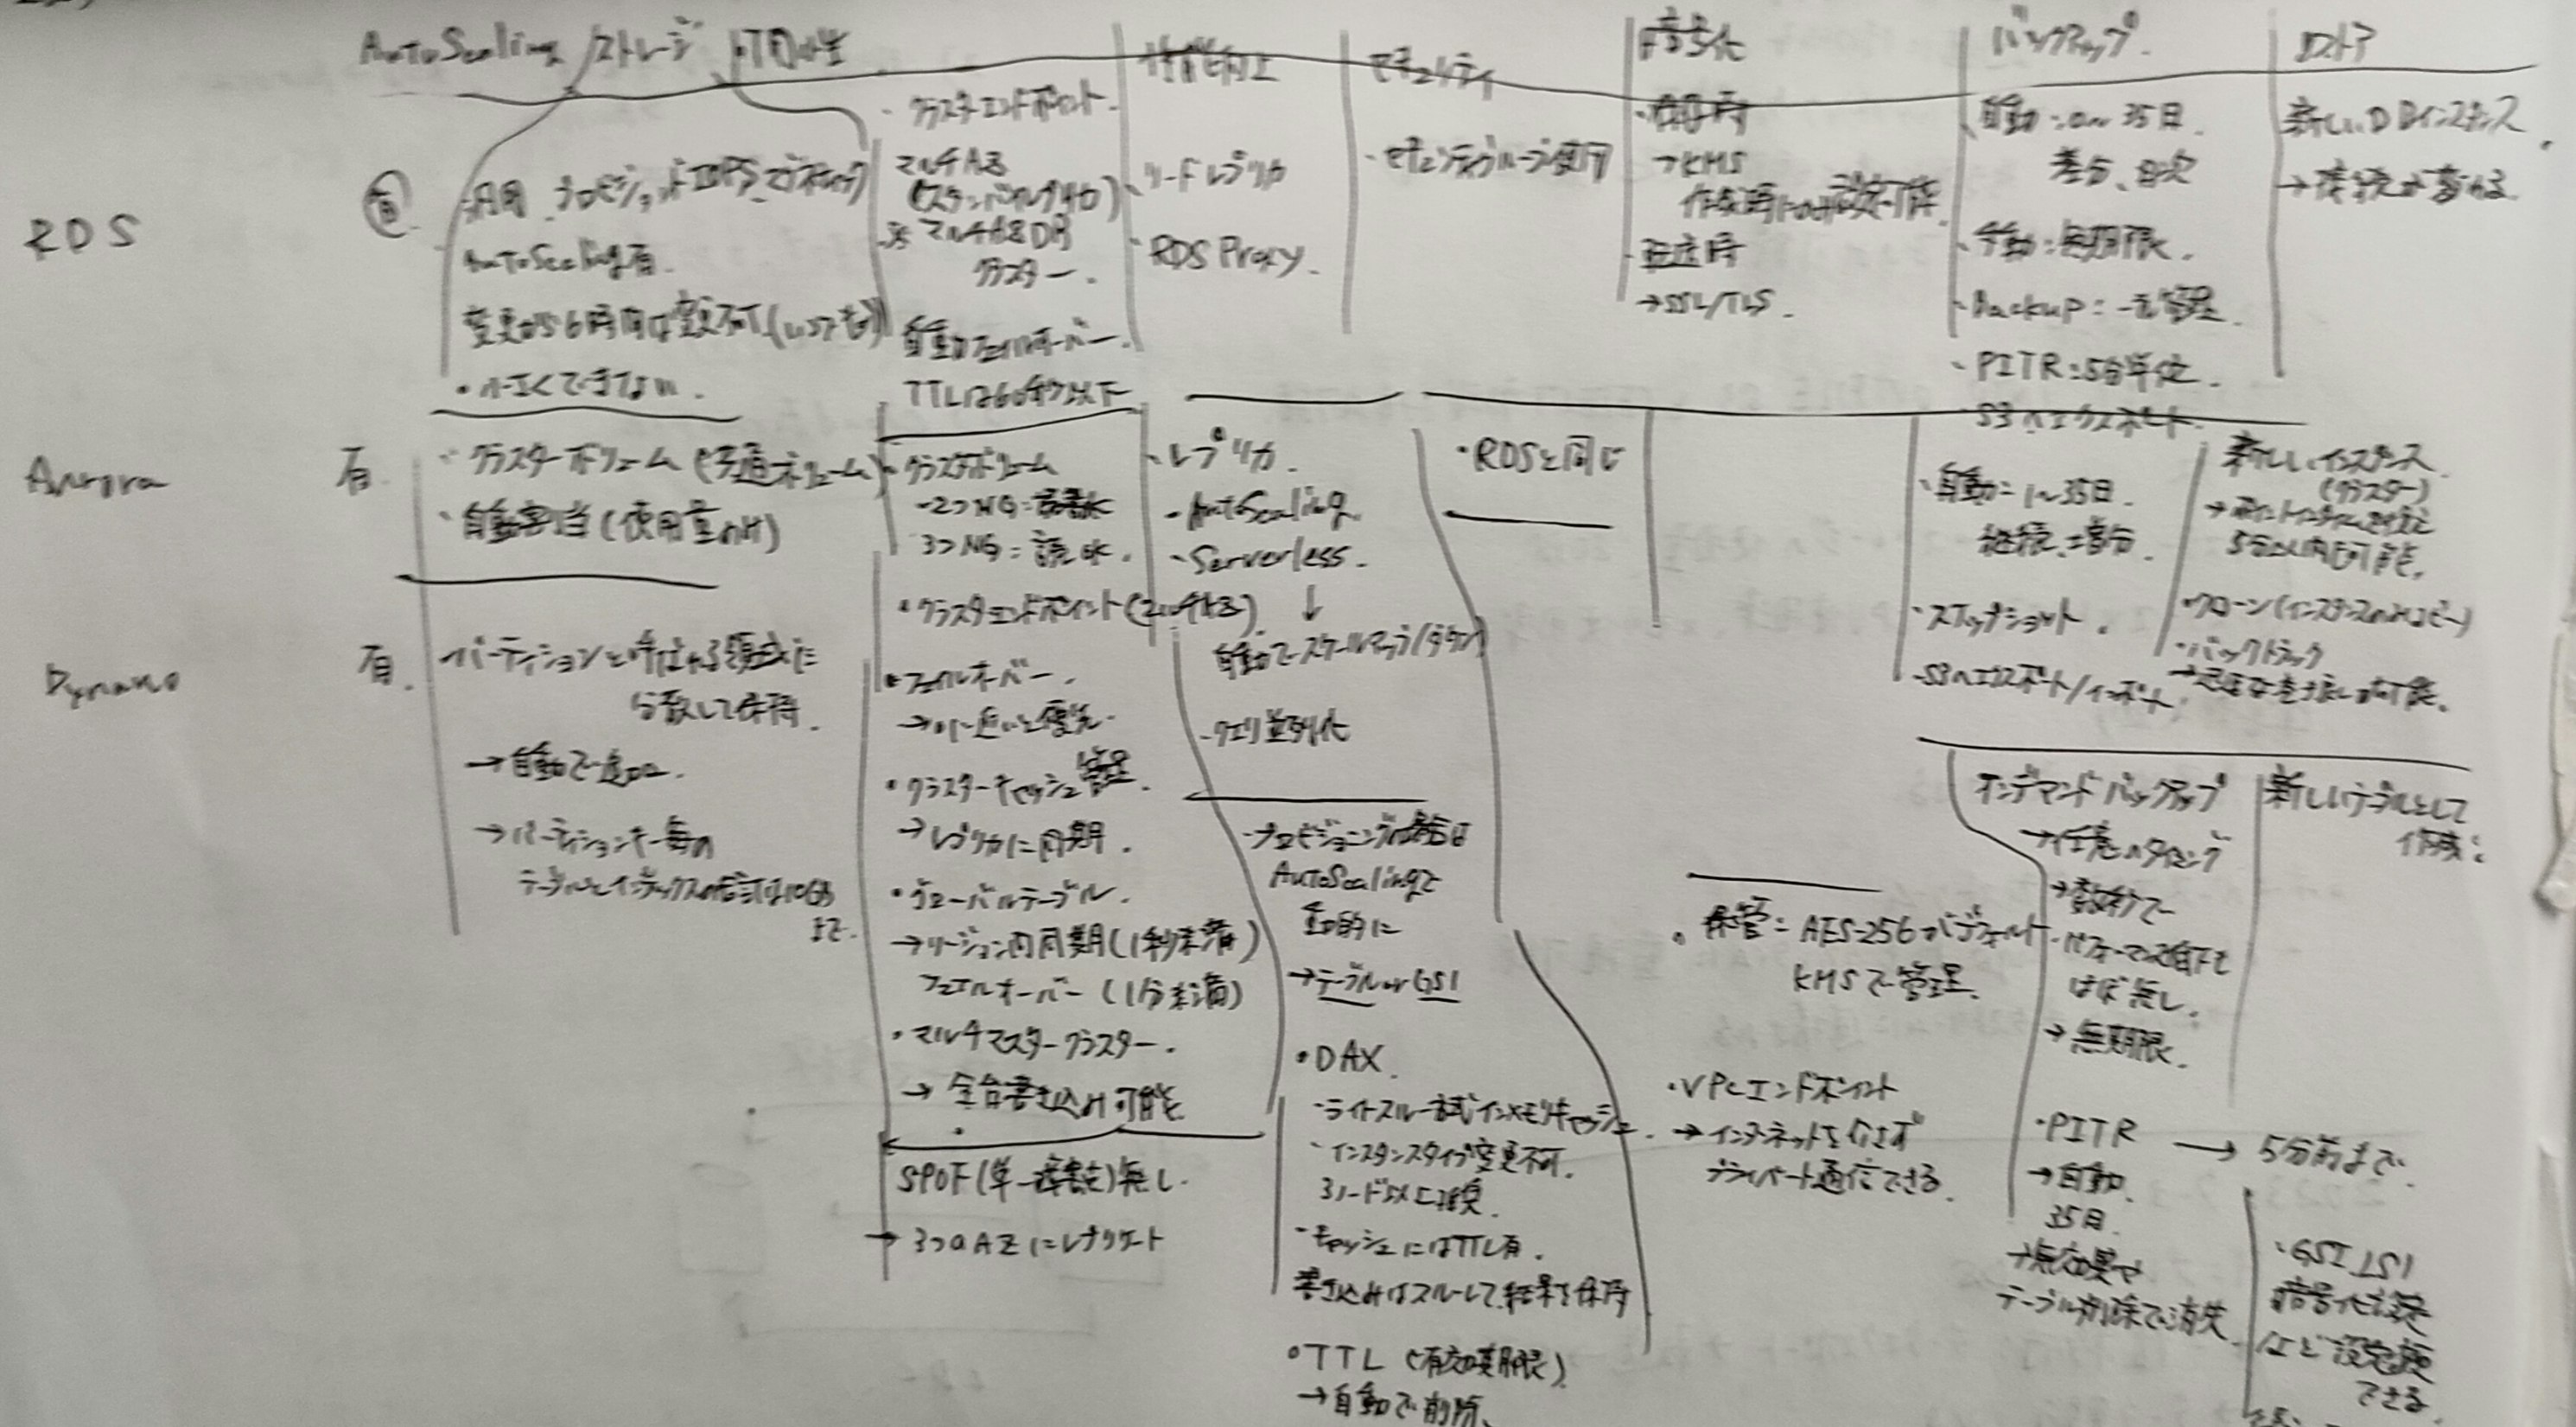 AutoScaling ストレージ 可用性 性能向上 セキュリティ 暗号化 バックアップ リストア
RDS
有
汎用 プロビジョンドIOPS マグネティック
AutoScaling有
変更から6時間は変更不可
・小さくできない
・クラスターエンドポイント
マルチAZ
(スタンバイレプリカ)
マルチAZDB
クラスター
自動フェイルオーバー
TTLは60秒以下
・リードレプリカ
・RDS Proxy
・セキュリティグループ使用
・保存時
→KMS
作成時にのみ設定可能
・伝送時
→SSL/TLS
・自動:0〜35日
差分、日次
・手動:無期限
・Backup:一元管理
・PITR:5分単位
・S3へエクスポート
新しいDBインスタンス
→接続が変わる
Aurora
有
・クラスターボリューム(共通ボリューム)
・自動割当(使用量のみ)
・クラスタボリューム
・2つNG:
3つNG:読
・クラスタエンドポイント(マルチAZ)
・フェイルオーバー
→0に近いと優先
・クラスターキャッシュ管理
→レプリカに同期
・グローバルテーブル
→リージョン間同期(1秒未満)
フェイルオーバー(1分未満)
・マルチマスタークラスター
→全台書き込み可能
・レプリカ
・AutoScaling
・Serverless
↓
自動でスケールアップ/ダウン
・クエリ並列化
・RDSと同じ
・自動:1〜35日
継続、増分
・スナップショット
・S3へエクスポート/インポート
新しいインスタンス
(クラスター)
5分以内も可能
・クローン(インスタンスのみコピー)
・バックトラック
Dynamo
有
パーティションと呼ばれる領域に
分散して保持
→自動で追加
→パーティションキー毎の
テーブルとインデックスの合計は10GB
まで
SPOF(単一障害点)無し
→3つのAZにレプリケート
・プロビジョニングの場合は
AutoScalingで
動的に
→テーブル or GSI
・DAX
・ライトスルー式インメモリキャッシュ
・インスタンスタイプ変更不可
3ノード以上推奨
・キャッシュにはTTL有
書き込みはスルーして、結果を保持
・TTL(有効期限)
→自動で削除
・保管:AES-256がデフォルト
KMSで管理
・VPCエンドポイント
→インターネットを介さず
プライベート通信できる
オンデマンドバックアップ
→任意のタイミング
→数秒で
・パフォーマンス低下も
ほぼ無し
→無期限
・PITR → 5分前まで
→自動
35日
→無効果や
テーブル削除で消失
新しいテーブルとして
作成
・GSI LSI
暗号化設定
など設定変更
できる